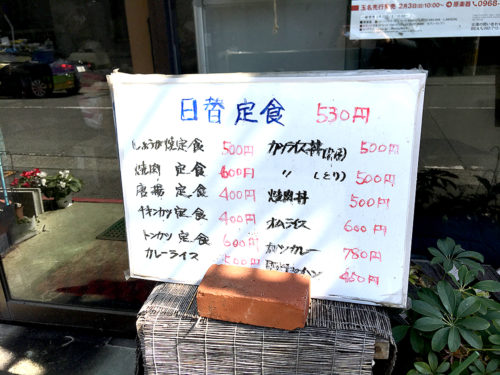 玉名先行販売 2月3日(日)10:00〜
0968-
日替定食 530円
しょうが焼定食 500円
焼肉 定食 600円
唐揚 定食 400円
チキンカツ定食 400円
トンカツ定食 600円
カレーライス 500円
カツライス丼 500円
〃 (とり) 500円
焼肉丼 500円
オムライス 600円
カツカレー 780円
450円